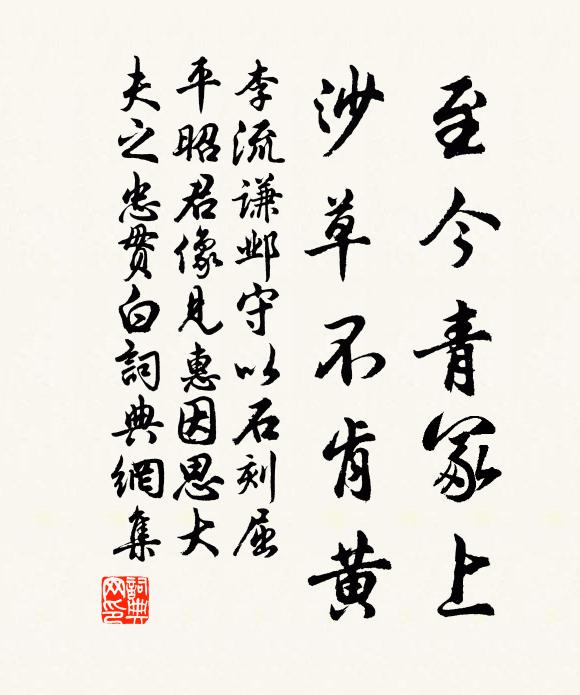 至今青冢上
沙草不肯黄
李流谦邺守以石刻屈
平昭君像見惠因思大
夫之忠贯白詞典網集
詞典網印